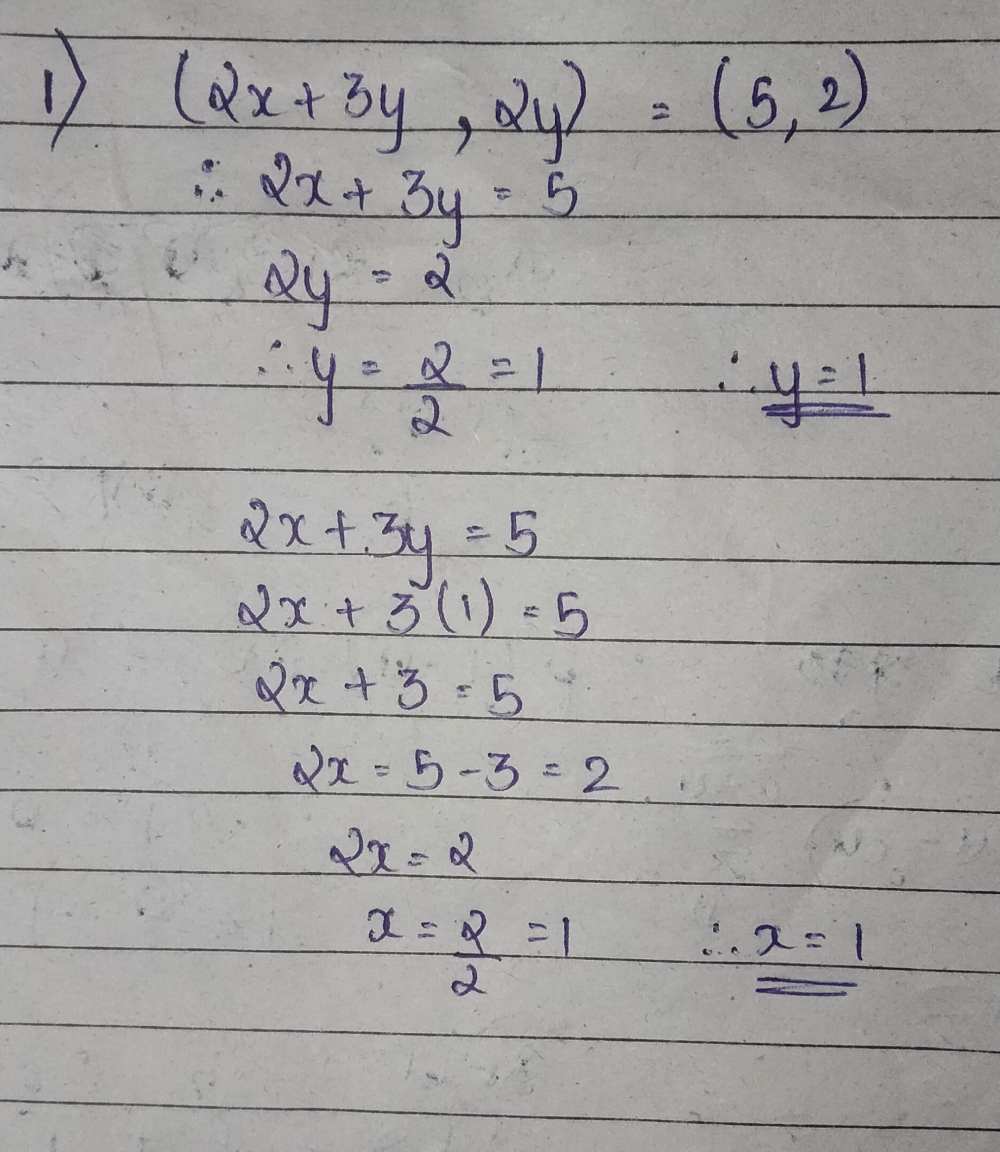 1) (2x+3y, 2y) = (5, 2)
∴ 2x + 3y = 5
2y = 2
∴ y = 2/2 = 1 ∴ y = 1
2x + 3y = 5
2x + 3(1) = 5
2x + 3 = 5
2x = 5 - 3 = 2
2x = 2
x = 2/2 = 1 ∴ x = 1